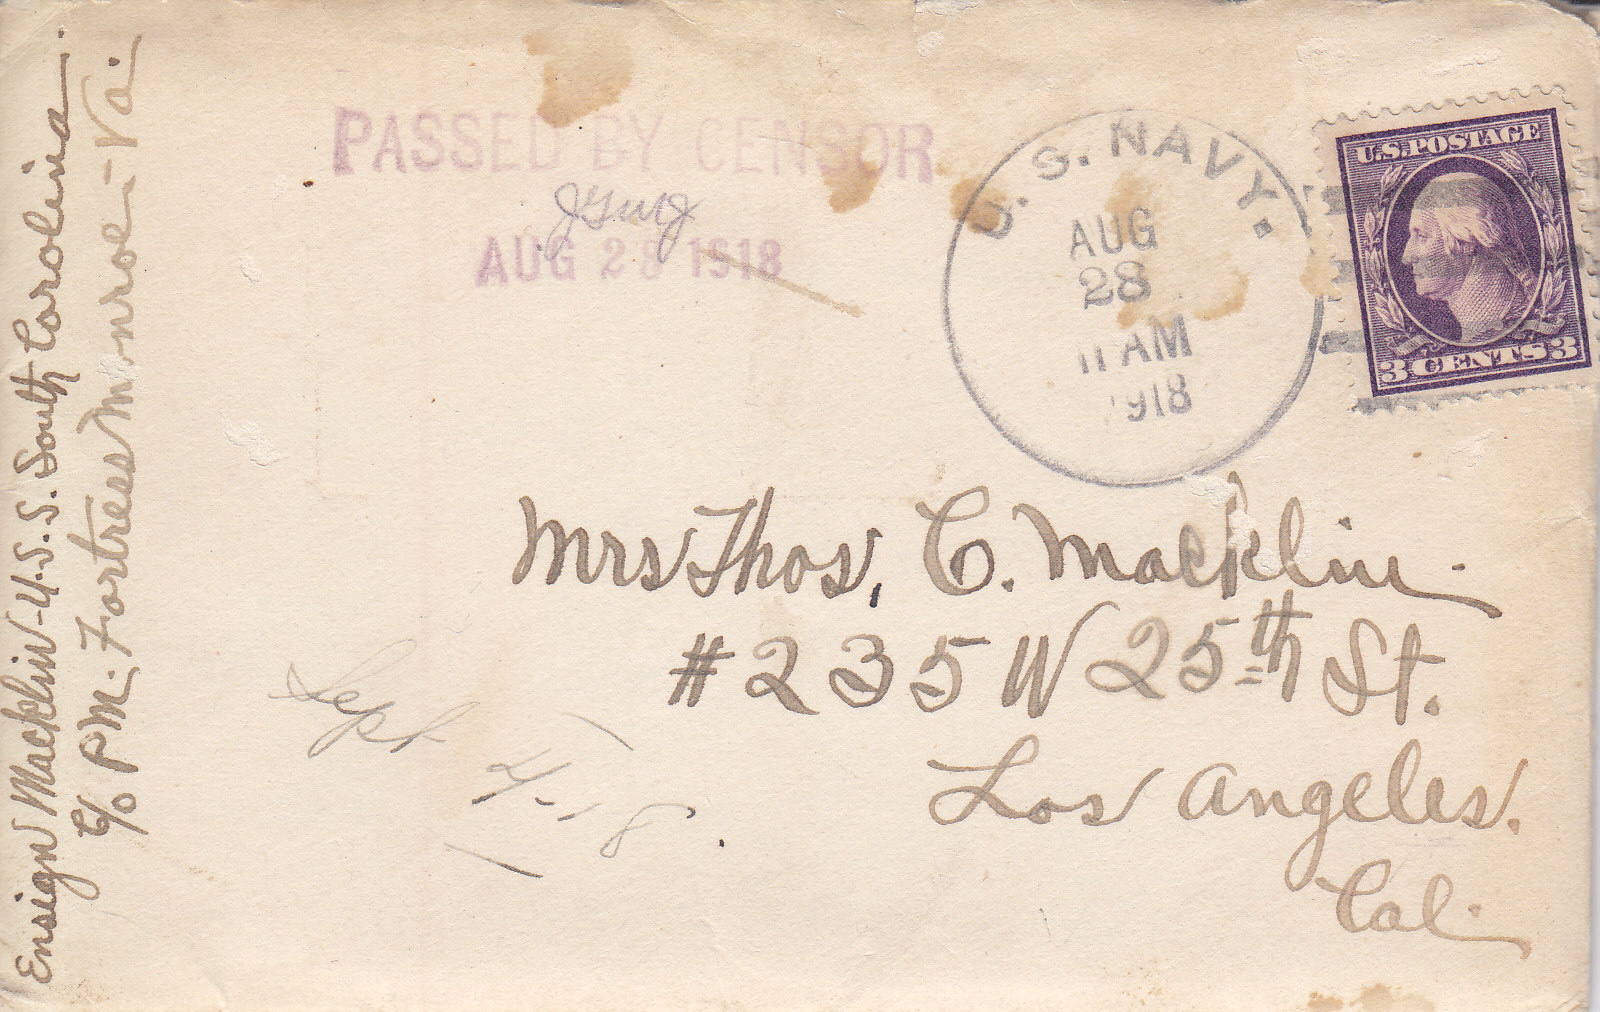 Ensign Macklin - U.S.S. South Carolina.
c/o P.M. Fortress Monroe - Va.
PASSED BY CENSOR
AUG 28 1918
U. S. NAVY.
AUG
28
11 AM
1918
U.S. POSTAGE
3 CENTS 3
Mrs Thos. C. Macklin.
#235 W 25th St.
Los Angeles.
Cal.
Sept 4-18.